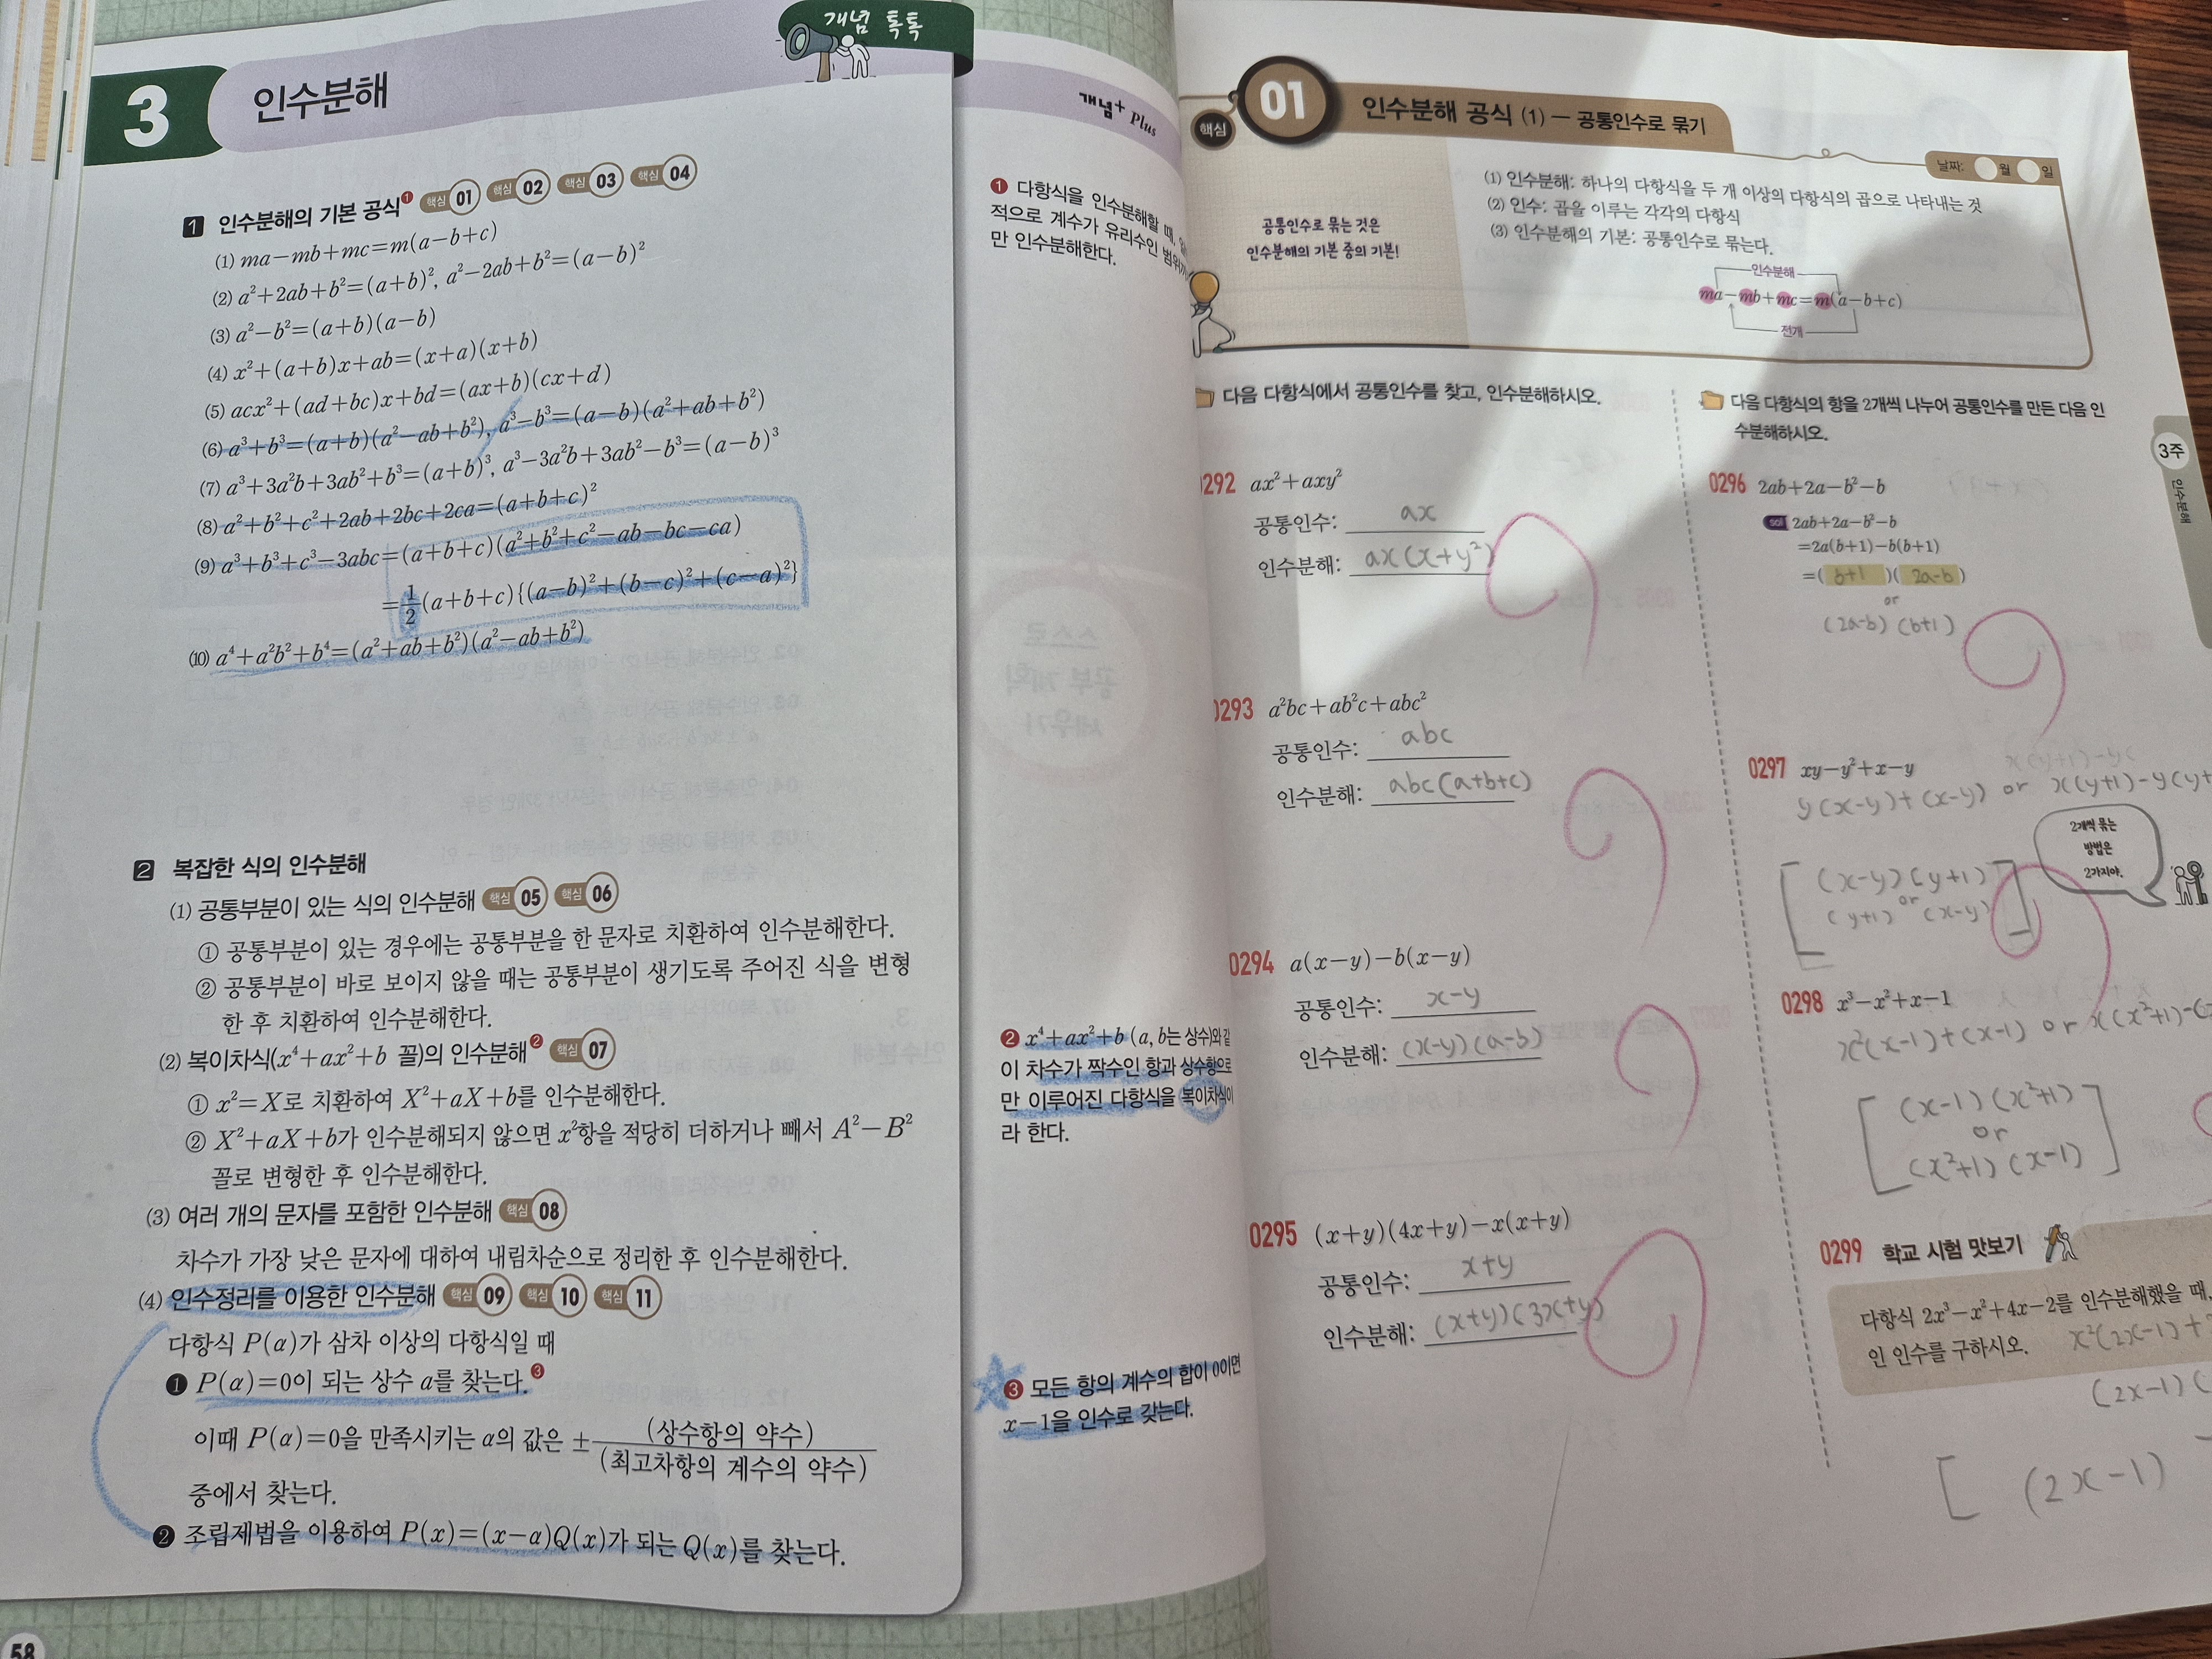 개념 톡톡
3 인수분해
1 인수분해의 기본 공식❶ 핵심 01 핵심 02 핵심 03 핵심 04
(1) ma−mb+mc=m(a−b+c)
(2) a²+2ab+b²=(a+b)², a²−2ab+b²=(a−b)²
(3) a²−b²=(a+b)(a−b)
(4) x²+(a+b)x+ab=(x+a)(x+b)
(5) acx²+(ad+bc)x+bd=(ax+b)(cx+d)
(6) a³+b³=(a+b)(a²−ab+b²), a³−b³=(a−b)(a²+ab+b²)
(7) a³+3a²b+3ab²+b³=(a+b)³, a³−3a²b+3ab²−b³=(a−b)³
(8) a²+b²+c²+2ab+2bc+2ca=(a+b+c)²
(9) a³+b³+c³−3abc=(a+b+c)(a²+b²+c²−ab−bc−ca)
=1/2(a+b+c){(a−b)²+(b−c)²+(c−a)²}
(10) a⁴+a²b²+b⁴=(a²+ab+b²)(a²−ab+b²)
2 복잡한 식의 인수분해
(1) 공통부분이 있는 식의 인수분해 핵심 05 핵심 06
① 공통부분이 있는 경우에는 공통부분을 한 문자로 치환하여 인수분해한다.
② 공통부분이 바로 보이지 않을 때는 공통부분이 생기도록 주어진 식을 변형
한 후 치환하여 인수분해한다.
(2) 복이차식(x⁴+ax²+b 꼴)의 인수분해❷ 핵심 07
① x²=X로 치환하여 X²+aX+b를 인수분해한다.
② X²+aX+b가 인수분해되지 않으면 x²항을 적당히 더하거나 빼서 A²−B²
꼴로 변형한 후 인수분해한다.
(3) 여러 개의 문자를 포함한 인수분해 핵심 08
차수가 가장 낮은 문자에 대하여 내림차순으로 정리한 후 인수분해한다.
(4) 인수정리를 이용한 인수분해 핵심 09 핵심 10 핵심 11
다항식 P(α)가 삼차 이상의 다항식일 때
❶ P(α)=0이 되는 상수 α를 찾는다.❸
이때 P(α)=0을 만족시키는 α의 값은 ±(상수항의 약수)/(최고차항의 계수의 약수)
중에서 찾는다.
❷ 조립제법을 이용하여 P(x)=(x−α)Q(x)가 되는 Q(x)를 찾는다.
58
개념+ Plus
❶ 다항식을 인수분해할 때,
적으로 계수가 유리수인
만 인수분해한다.
❷ x⁴+ax²+b (a, b는 상수)와 같
이 차수가 짝수인 항과 상수항으로
만 이루어진 다항식을 복이차식이
라 한다.
❸ 모든 항의 계수의 합이 0이면
x−1을 인수로 갖는다.
핵심 01 인수분해 공식 (1) − 공통인수로 묶기
날짜: 월 일
공통인수로 묶는 것은
인수분해의 기본 중의 기본!
(1) 인수분해: 하나의 다항식을 두 개 이상의 다항식의 곱으로 나타내는 것
(2) 인수: 곱을 이루는 각각의 다항식
(3) 인수분해의 기본: 공통인수로 묶는다.
인수분해
ma−mb+mc=m(a−b+c)
전개
다음 다항식에서 공통인수를 찾고, 인수분해하시오.
0292 ax²+axy²
공통인수: ax
인수분해: ax(x+y²)
0293 a²bc+ab²c+abc²
공통인수: abc
인수분해: abc(a+b+c)
0294 a(x−y)−b(x−y)
공통인수: x-y
인수분해: (x-y)(a-b)
0295 (x+y)(4x+y)−x(x+y)
공통인수: x+y
인수분해: (x+y)(3x+y)
다음 다항식의 항을 2개씩 나누어 공통인수를 만든 다음 인
수분해하시오.
0296 2ab+2a−b²−b
sol 2ab+2a−b²−b
=2a(b+1)−b(b+1)
=( b+1 )( 2a-b )
or
(2a-b) (b+1)
0297 xy−y²+x−y
y(x-y)+(x-y) or x(y+1)-y(y+
(x-y)(y+1)
or
(y+1) (x-y)
2개씩 묶는
방법은
2가지야.
0298 x³−x²+x−1
x²(x-1)+(x-1) or x(x²+1)-(
(x-1)(x²+1)
or
(x²+1)(x-1)
0299 학교 시험 맛보기
다항식 2x³−x²+4x−2를 인수분해했을 때,
인 인수를 구하시오. x²(2x-1)+
(2x-1)(
(2x-1)
3주
인수분해